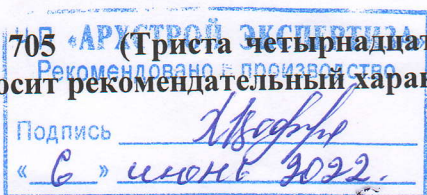 ЧП «АРХСТРОЙ ЭКСПЕРТИЗА
705 (Триста четырнадцат
Рекомендовано к производство
осит рекомендательный харак
Подпись
« 6 » июнь 2022.